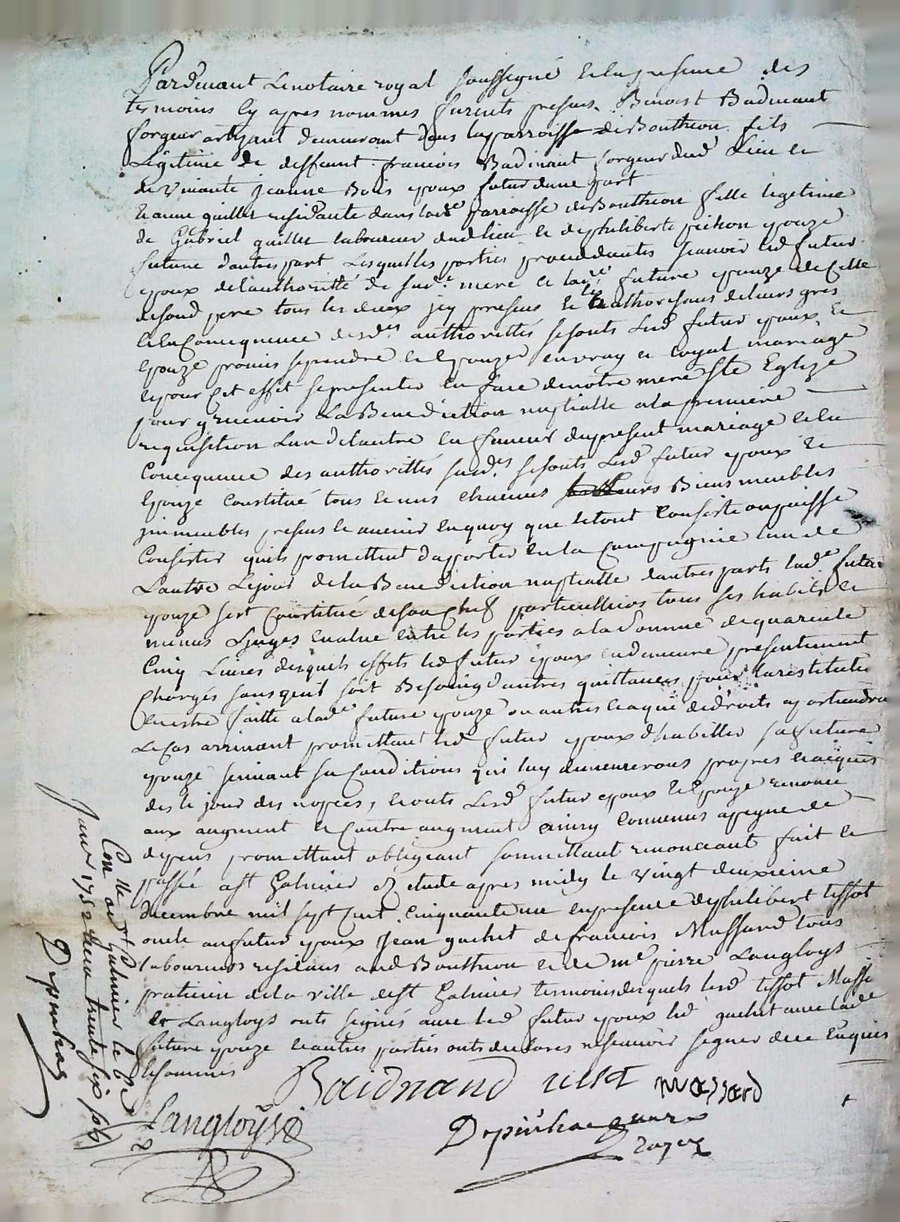 Pardevant Lenotaire royal soussigné & en la presence des
temoins cy apres nommes furents presens Benoist Badinant
forgeur artizant demeurant dans la parroisse de Bouthion fils
Légitime de deffeunt françois Badinant forgeur dud lieu et
de vivante jeanne Bois epoux futur d'une part
Et anne quillet residante dans lad.e parroisse de Bouthion fille legitime
de Gabriel quillet laboureur dud lieu et de philiberte pichon epouze
future d'autre part Lesquelles parties procedantes scavoir led futur
epoux de l'authoritté de sad.e mere et lad.e future epouze de celle
de sond pere tous les deux icy presens et authorisans de leurs gres
et en Consequence desd.s authorittés se sonts Lesd futur epoux et
Epouze promis se prendre et Epouzer en vray et loyal mariage
et pour cet effet se presenter en face de notre mere ste Eglize
pour y recevoir La Benediction nuptialle a la premiere
requisition L'un de l'autre en faveur du present mariage et en
Consequence des authorittés susd.s se sonts Lesd futur epoux et
Epouze constitué tous et uns chacuns leurs Biens meubles
immeubles presens et avenir en quoy que le tout consiste ou puisse
Consister quils promettent d'apporter en la Compagnie l'un de
L'autre Le jour de la Benediction nuptialle d'autre part lad.e future
epouze sest Constitué de son chef particullier tous ses habits et
menus Linges evalué entre les parties a la somme de quarente
Cinq Livres desquels effets led futur epoux en demeure presentement
Chargés sans quil soit Besoing d'autres quittances pour la restitution
en estre faitte a lad.e future epouze ou autres a qui de droits apartiendra
Le cas arrivant promettant led futur epoux d'habiller sa future
epouze suivant sa Condition qui luy demeurerons propres et acquis
des le jour des nopces, et onts Lesd futur epoux et Epouze renoncé
aux augment et Contre augment ainsy convenus a peyne de
depens promettant obligeant sommettant renonceant fait et
passé a st Galmier et etude apres midy le vingt deuxieme
decembre mil sept cent cinquante un en presence de philibert tissot
oncle au futur epoux jean guchet de francois Massard tous
laboureurs residans aud Bouthion et de m.e pierre Langloys
praticien de la ville de st Galmier temoins desquels lesd tissot Massard
et Langloys onts signés avec led futur epoux led guchet avec lade
future epouze et autres parties onts declarés ne scavoir signer de ce Enquis
et sommés
Badinand tissot massard
Langloys
Depinhac
nore
royal
Con.lle a st Galmier le 6.e
janv.er 1752 recu trente six sols
Depinhac